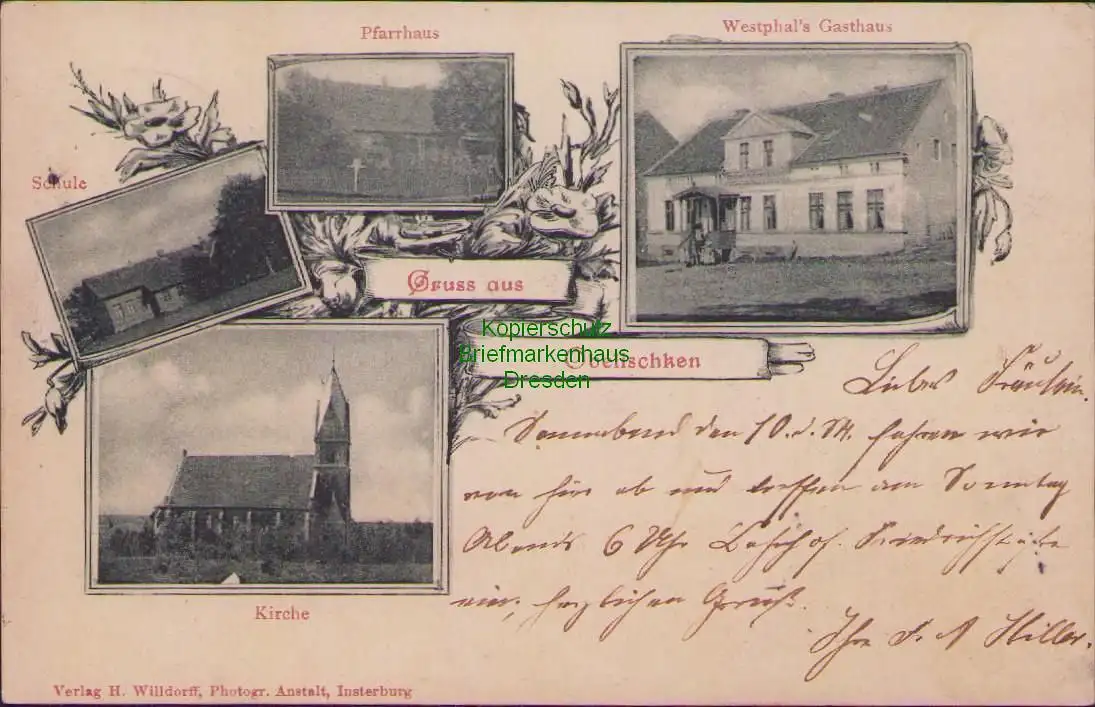 Pfarrhaus
Westphal's Gasthaus
Schule
Gruss aus
Obelischken
Kopierschutz
Briefmarkenhaus
Dresden
Liebes Fräulein.
Sonnabend den 10. d. M. fahren wir
von hier ab und treffen am Sonntag
Abends 6 Uhr Bahnhof. Friedrichstraße
ein, herzlichen Gruß.
Ihre F. A Hiller.
Kirche
Verlag H. Willdorff, Photogr. Anstalt, Insterburg